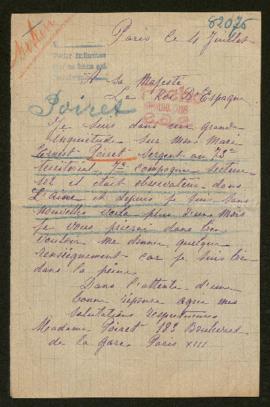 82025
Paris le 4 Juillet
A Sa Majesté
Le Roi D'Espagne
Poiret
Je suis dans une grande
inquiétude sur mon Mari
Poiret Sergent au 73e
territorial 7e compagnie secteur
et était observateur dans
L'Aisne et depuis je suis sans
nouvelles plus d'une mois
je vous prierai dans bon
me donner quelque
renseignement car je suis bien
dans la peine
Dans l'attente d'une
bonne réponse agréé mes
salutations respectueuses
Madame Poiret 183 Boulevard
de la gare Paris XIII